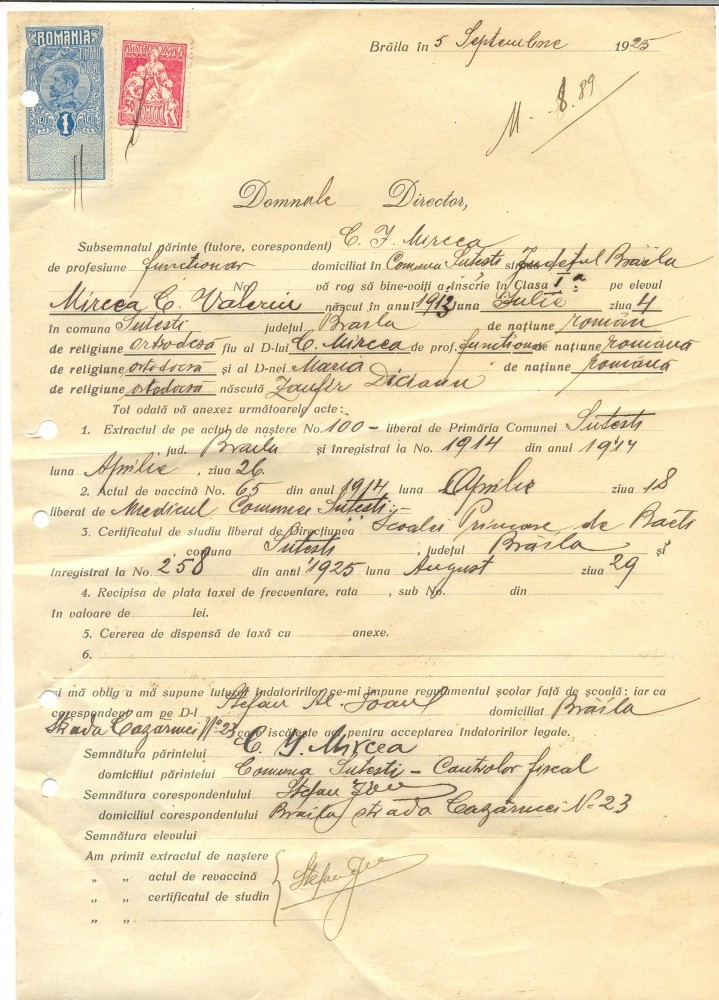 ROMANIA
1
50
Brăila în 5 Septembrie 1925
8.89
Domnule Director,
Subsemnatul părinte (tutore, corespondent) C. I. Mircea
de profesiune funcționar domiciliat în Comuna Șutești strada Județul Brăila
No. vă rog să bine-voiți a înscrie în Clasa I a pe elevul
Mircea C. Valeriu născut în anul 1913 luna Iulie ziua 4
în comuna Șutești județul Braila de națiune român
de religiune ortodoxă fiu al D-lui C. Mircea de prof. funcționar de națiune română
de religiune ortodoxă și al D-nei Maria de națiune română
de religiune ortodoxă născută Zamfir Diceanu
Tot odată vă anexez următoarele acte:
1. Extractul de pe actul de naștere No. 100 – liberat de Primăria Comunei Șutești
jud. Braila și înregistrat la No. 1914 din anul 1914
luna Aprilie, ziua 26.
2. Actul de vaccină No. 65 din anul 1914 luna Aprilie ziua 18
liberat de Medicul Comunei Șutești
3. Certificatul de studiu liberat de Direcțiunea Școalei Primare de Baeți
comuna Șutești, județul Brăila și
înregistrat la No. 258 din anul 1925 luna August ziua 29
4. Recipisa de plata taxei de frecventare, rata, sub No. din
în valoare de lei.
5. Cererea de dispensă de taxă cu anexe.
6.
și mă oblig a mă supune tuturor îndatoririlor ce-mi impune regulamentul școlar față de școală: iar ca
corespondent am pe D-l Ștefan Al. Ioan domiciliat Brăila
Strada Cazărmei No 23 care iscălește aci pentru acceptarea îndatoririlor legale.
Semnătura părintelui C. I. Mircea
domiciliul părintelui Comuna Șutești – Controlor fiscal
Semnătura corespondentului Ștefan
domiciliul corespondentului Braila strada Cazărmei No 23
Semnătura elevului
Am primit extractul de naștere
„ „ actul de revaccină Ștefan
„ „ certificatul de studin
„ „